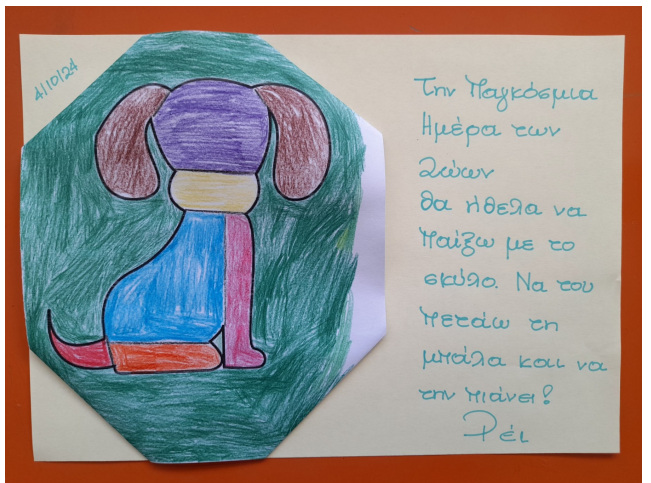 4/10/24
Την Παγκόσμια
Ημέρα των
Ζώων
θα ήθελα να
παίξω με το
σκύλο. Να του
πετάω τη
μπάλα και να
την πιάνει!
Ρέι